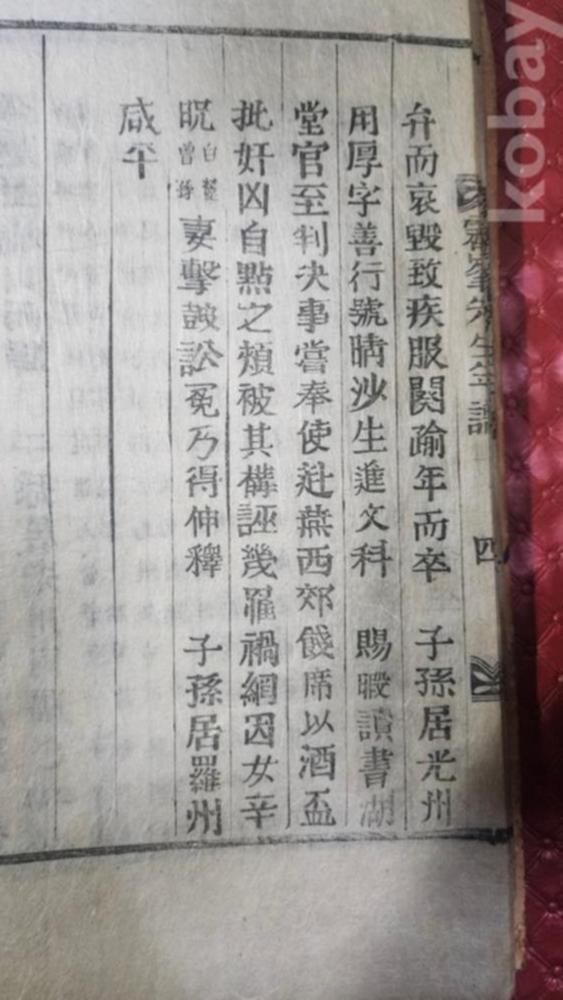 弁而哀毀致疾服闋踰年而卒 子孫居光州
用厚字善行號晴沙生進文科 賜暇讀書湖
堂官至判決事嘗奉使赴燕西郊餞席以酒盃
批奸凶自點之頰被其構誣幾罹禍網因女辛
昵 妻擊鼓訟冤乃得伸釋 子孫居羅州
咸平
先生年譜
四
kobay